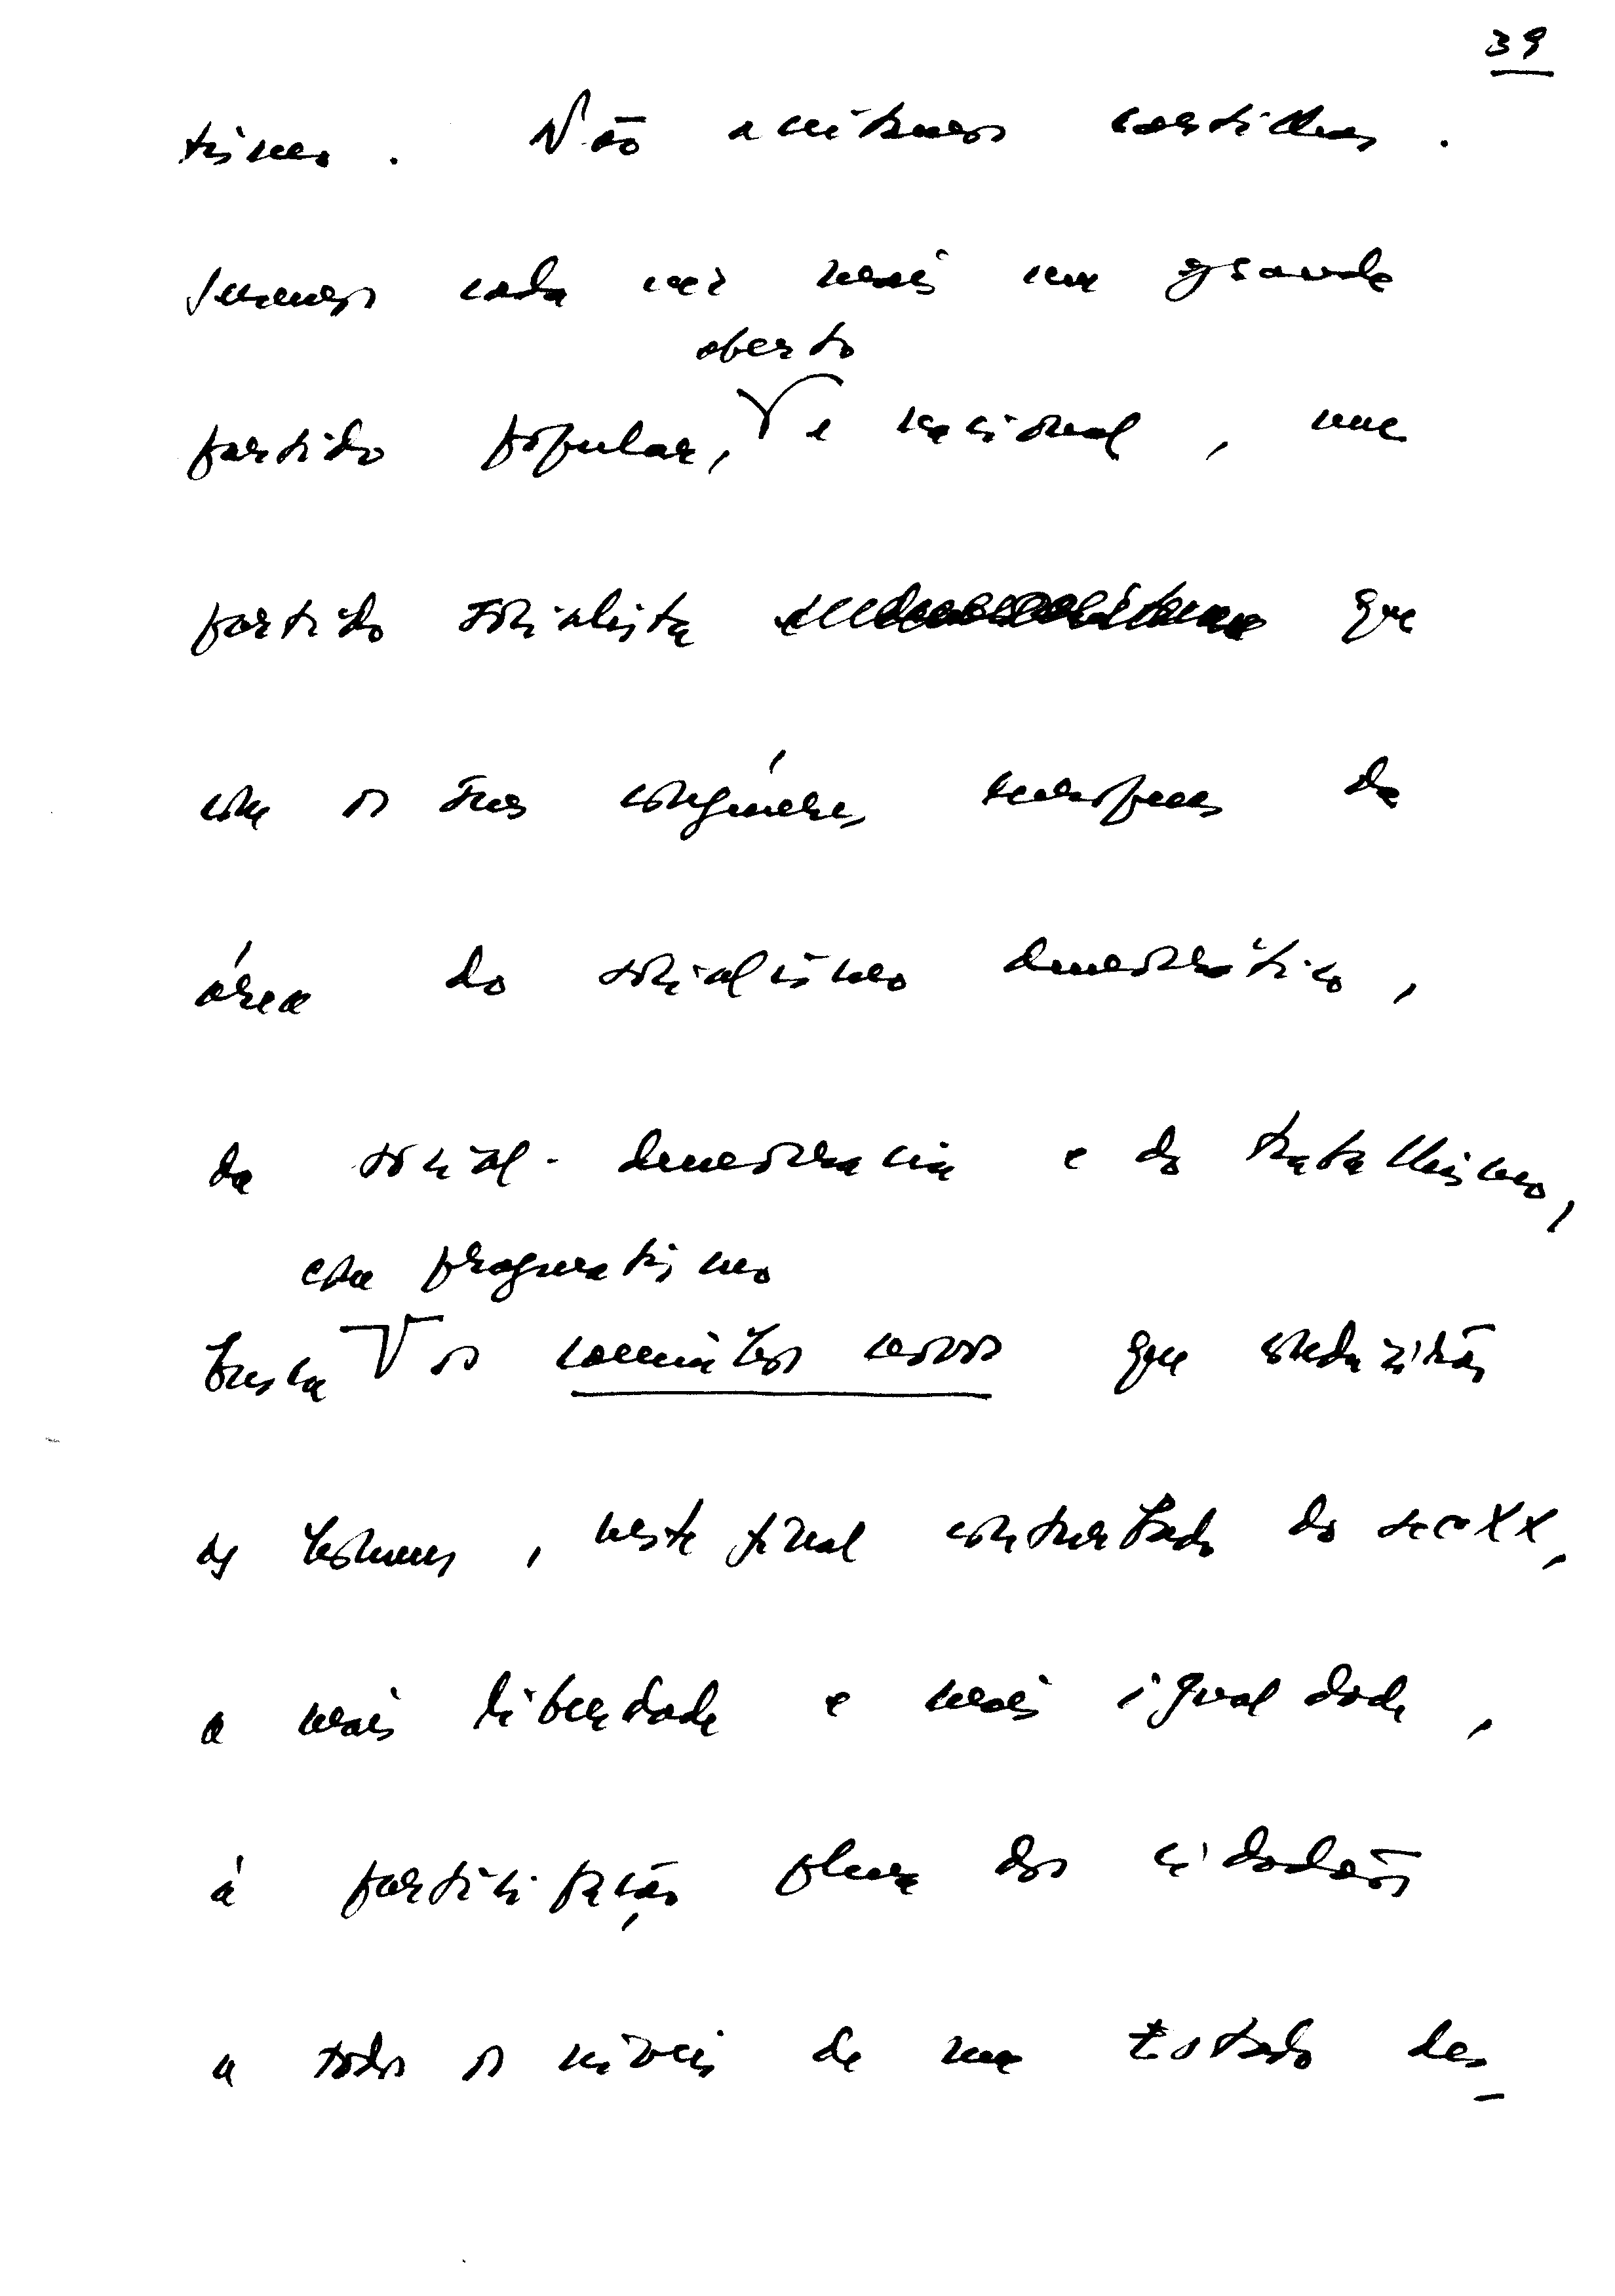 39
tismo. Não aceitamos cartilhas.
Somos cada vez mais um grande
aberto
partido popular, e nacional, um
partido socialista que
com os seus congéneres europeus da
área do socialismo democrático,
da social-democracia e do trabalhismo,
com pragmatismo
busca os caminhos novos que conduzirão
os homens, neste final conturbado do sec XX,
a mais liberdade e mais igualdade,
à participação plena dos cidadãos
a todos os níveis de um Estado des-